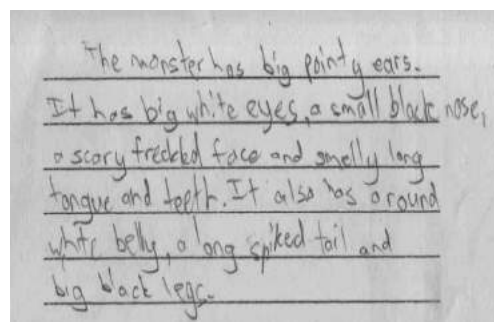 The monster has big pointy ears.
It has big white eyes, a small black nose,
a scary freckled face and smelly long
tongue and teeth. It also has a round
white belly, a long spiked tail and
big black legs.